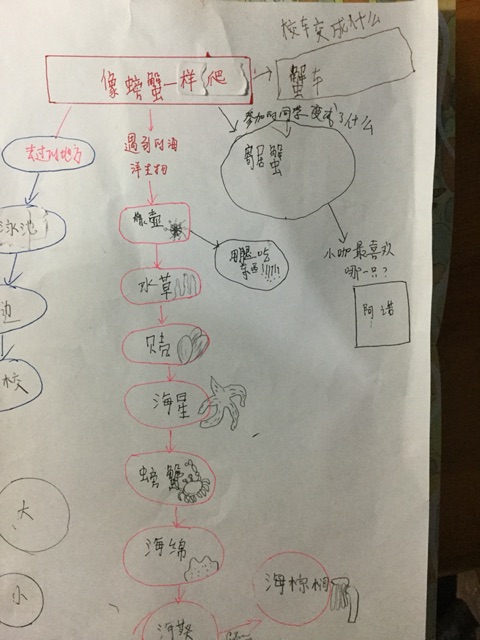 校车变成什么
像螃蟹一样爬
蟹车
参加的同学变成了什么
去过的地方
遇到的海
洋生物
寄居蟹
泳池
藤壶
用腿吃
东西!!!!!!
小咖最喜欢
哪一只?
水草
边
阿诺
贝壳
校
海星
螃蟹
大
海绵
小
海棕榈
海葵